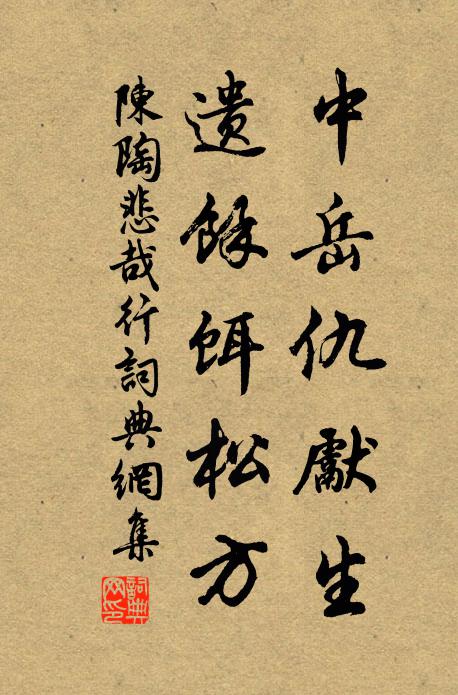 中岳仇獻生
遺餘餌松方
陳陶悲哉行詞典網集
詞典网印